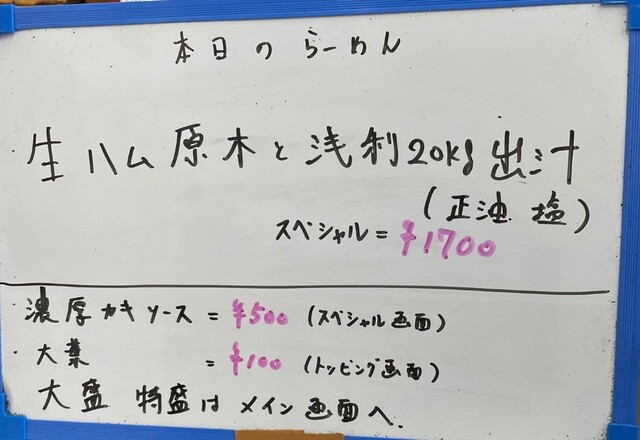 本日のらーめん
生ハム原木と浅利20kg出汁
(正油 塩)
スペシャル=¥1700
濃厚カキソース=¥500(スペシャル画面)
大葉=¥100(トッピング画面)
大盛 特盛はメイン画面へ.